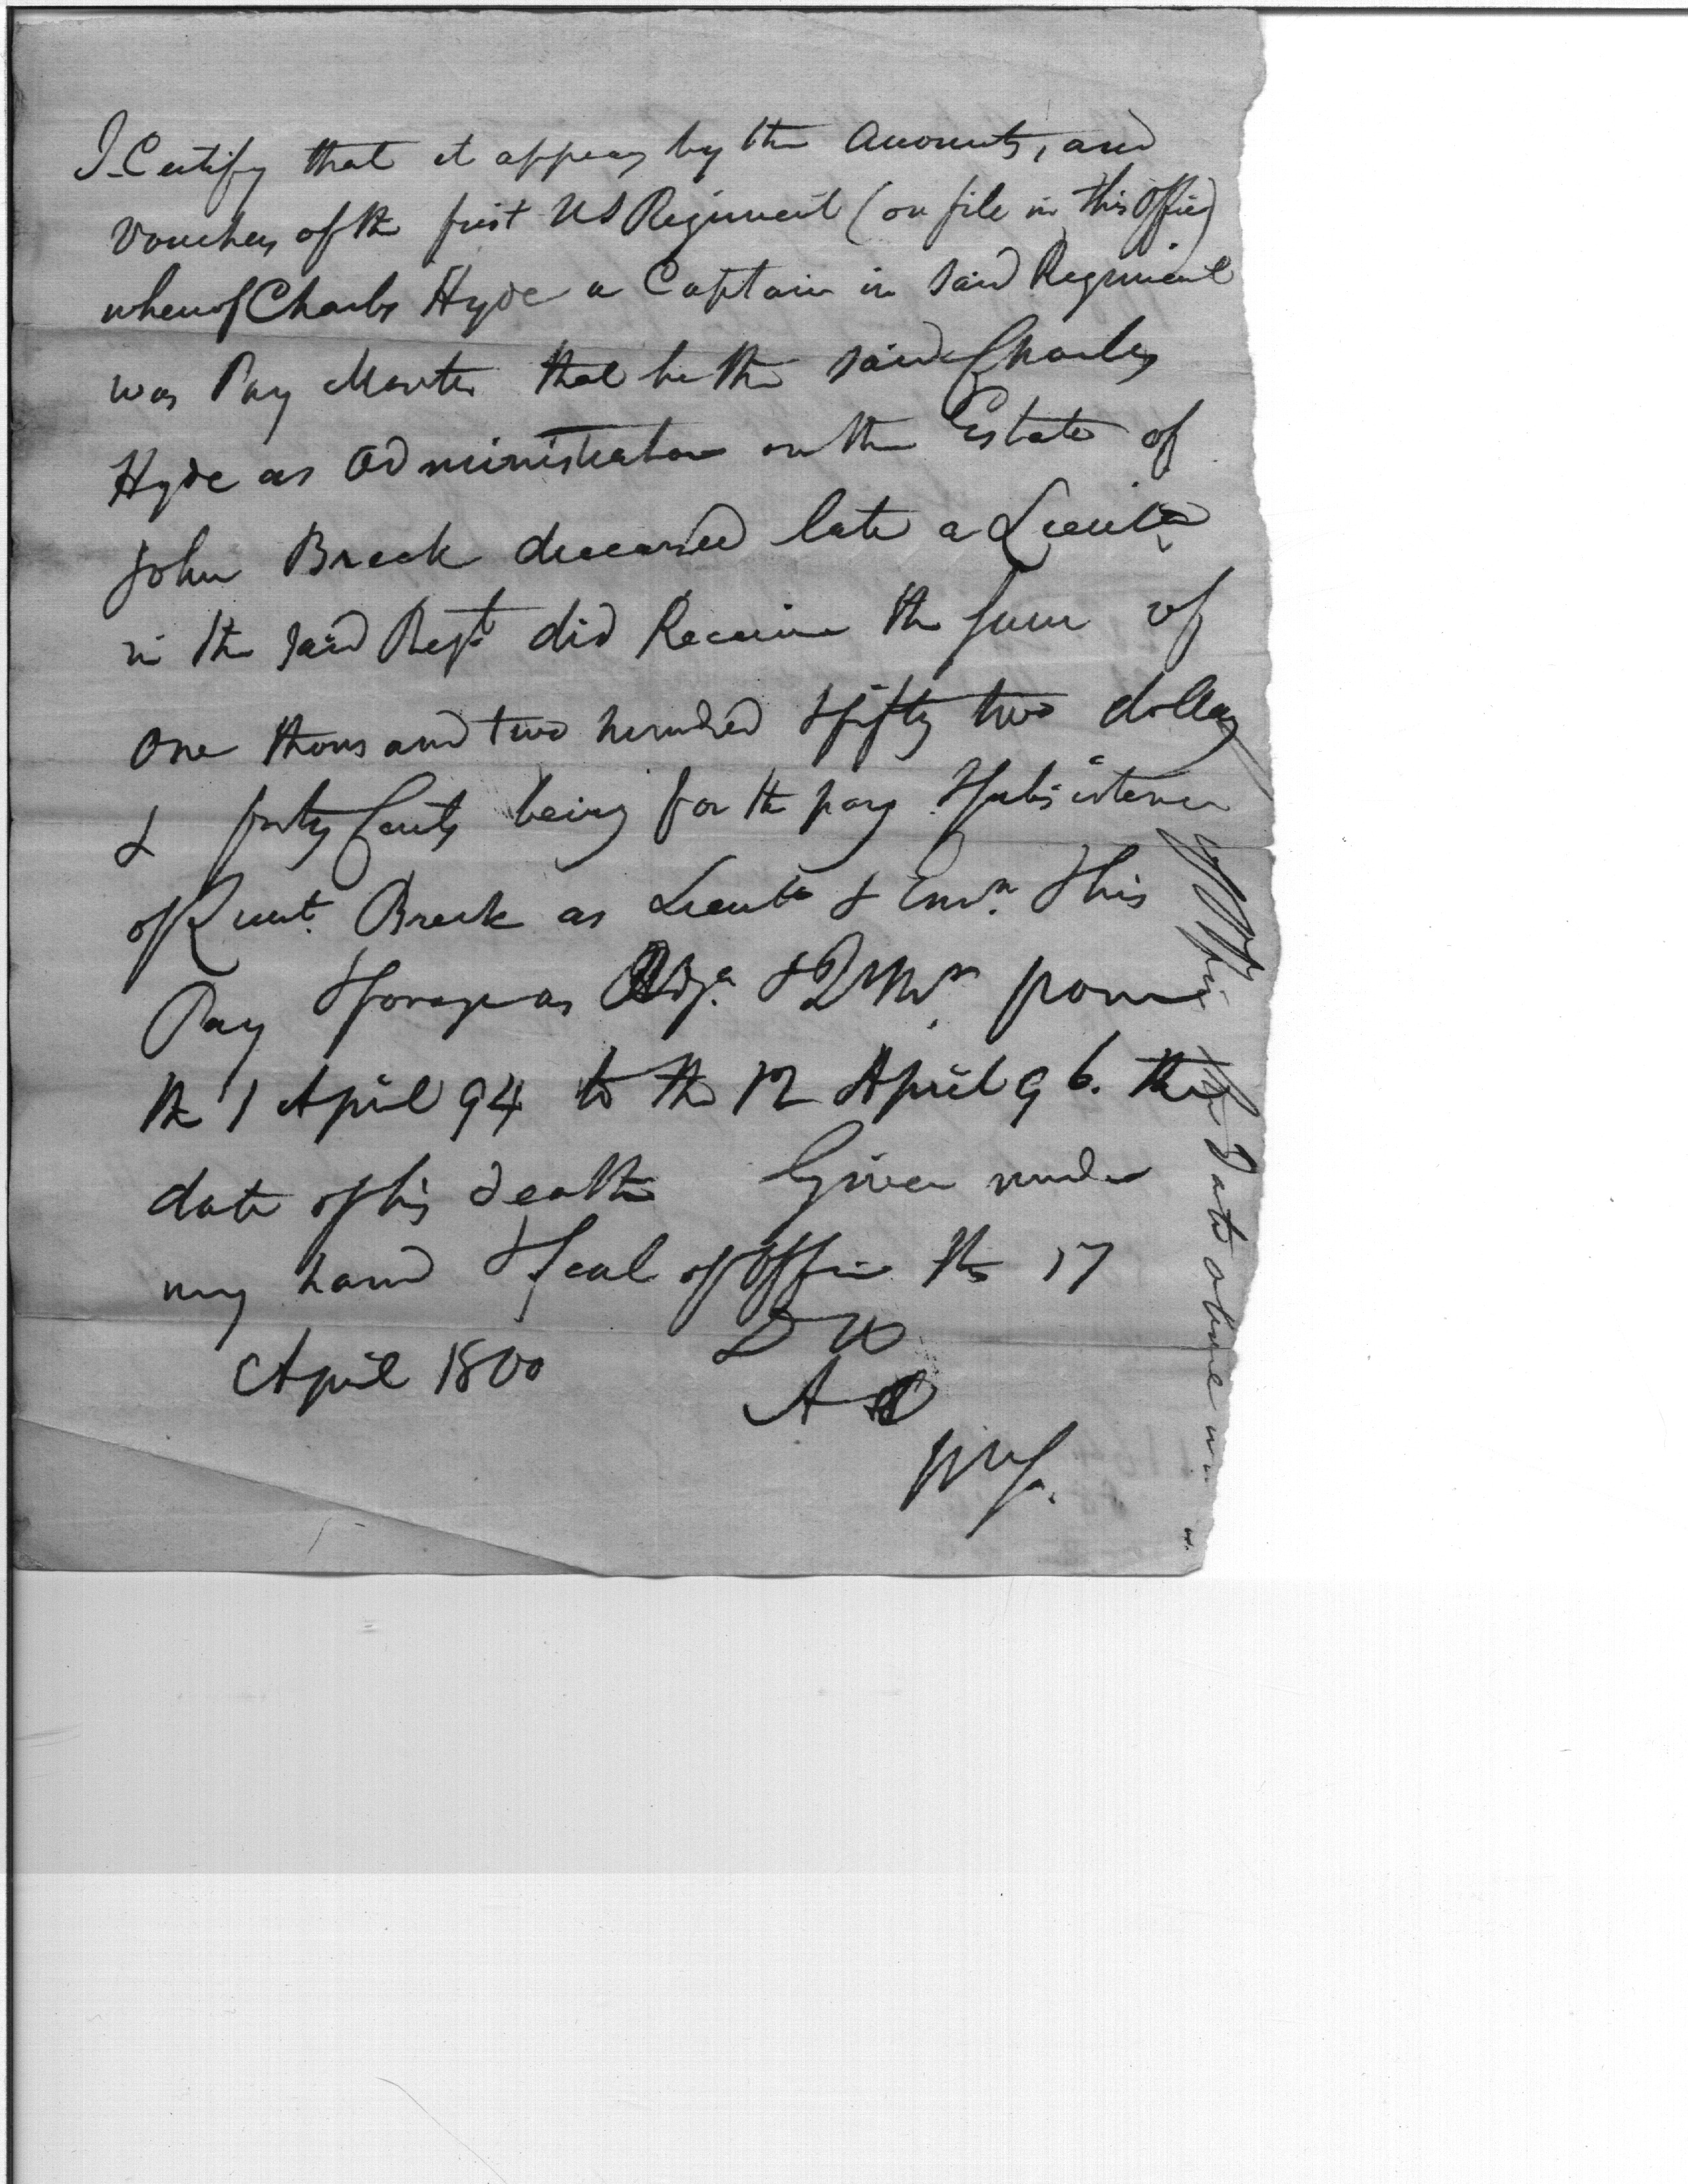 I Certify that it appears by the Accounts, and
Vouchers of the first US Regiment (on file in this Office)
whereof Charles Hyde a Captain in said Regiment
was Pay Master that he the said Charles
Hyde as Administrator on the Estate of
John Breck deceased late a Lieut.
in the said Regt did Receive the sum of
One thousand two hundred & fifty two dollars
& forty Cents being for the pay & subsistence
of Lieut. Breck as Lieut & & his
Pay & forage as Adjt. & Q Mr. from
the 1 April 94 to the 12 April 96. the
date of his death Given under
my hand & seal of Office the 17
April 1800
D W
A
of Office the Date above